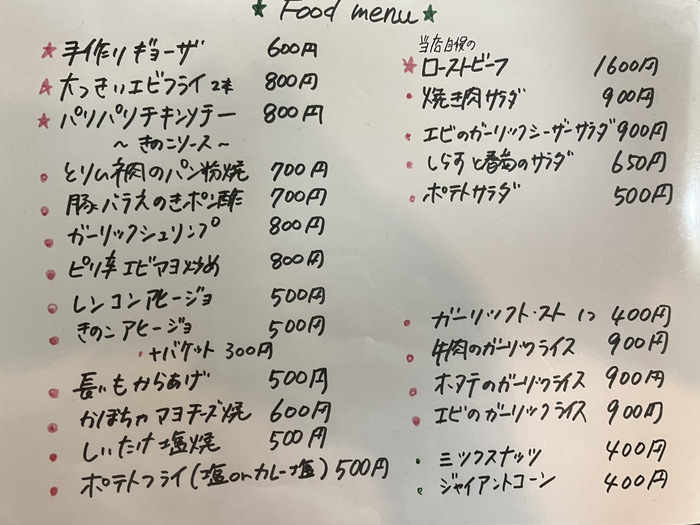 ★ Food menu ★
★ 手作りギョーザ 600円
★ 大っきいエビフライ 2本 800円
★ パリパリチキンソテー 800円
～きのこソース～
• とりムネ肉のパン粉焼 700円
• 豚バラえのきポン酢 700円
• ガーリックシュリンプ 800円
• ピリ辛エビマヨ炒め 800円
• レンコンアヒージョ 500円
• きのこアヒージョ 500円
• +バケット 300円
• 長いもからあげ 500円
• かぼちゃマヨチーズ焼 600円
• しいたけ塩焼 500円
• ポテトフライ(塩orカレー塩) 500円
当店自慢の
★ ローストビーフ 1600円
• 焼き肉サラダ 900円
• エビのガーリックシーザーサラダ 900円
• しらすと春菊のサラダ 650円
• ポテトサラダ 500円
• ガーリックトースト 1つ 400円
• 牛肉のガーリックライス 900円
• ホタテのガーリックライス 900円
• エビのガーリックライス 900円
• ミックスナッツ 400円
• ジャイアントコーン 400円